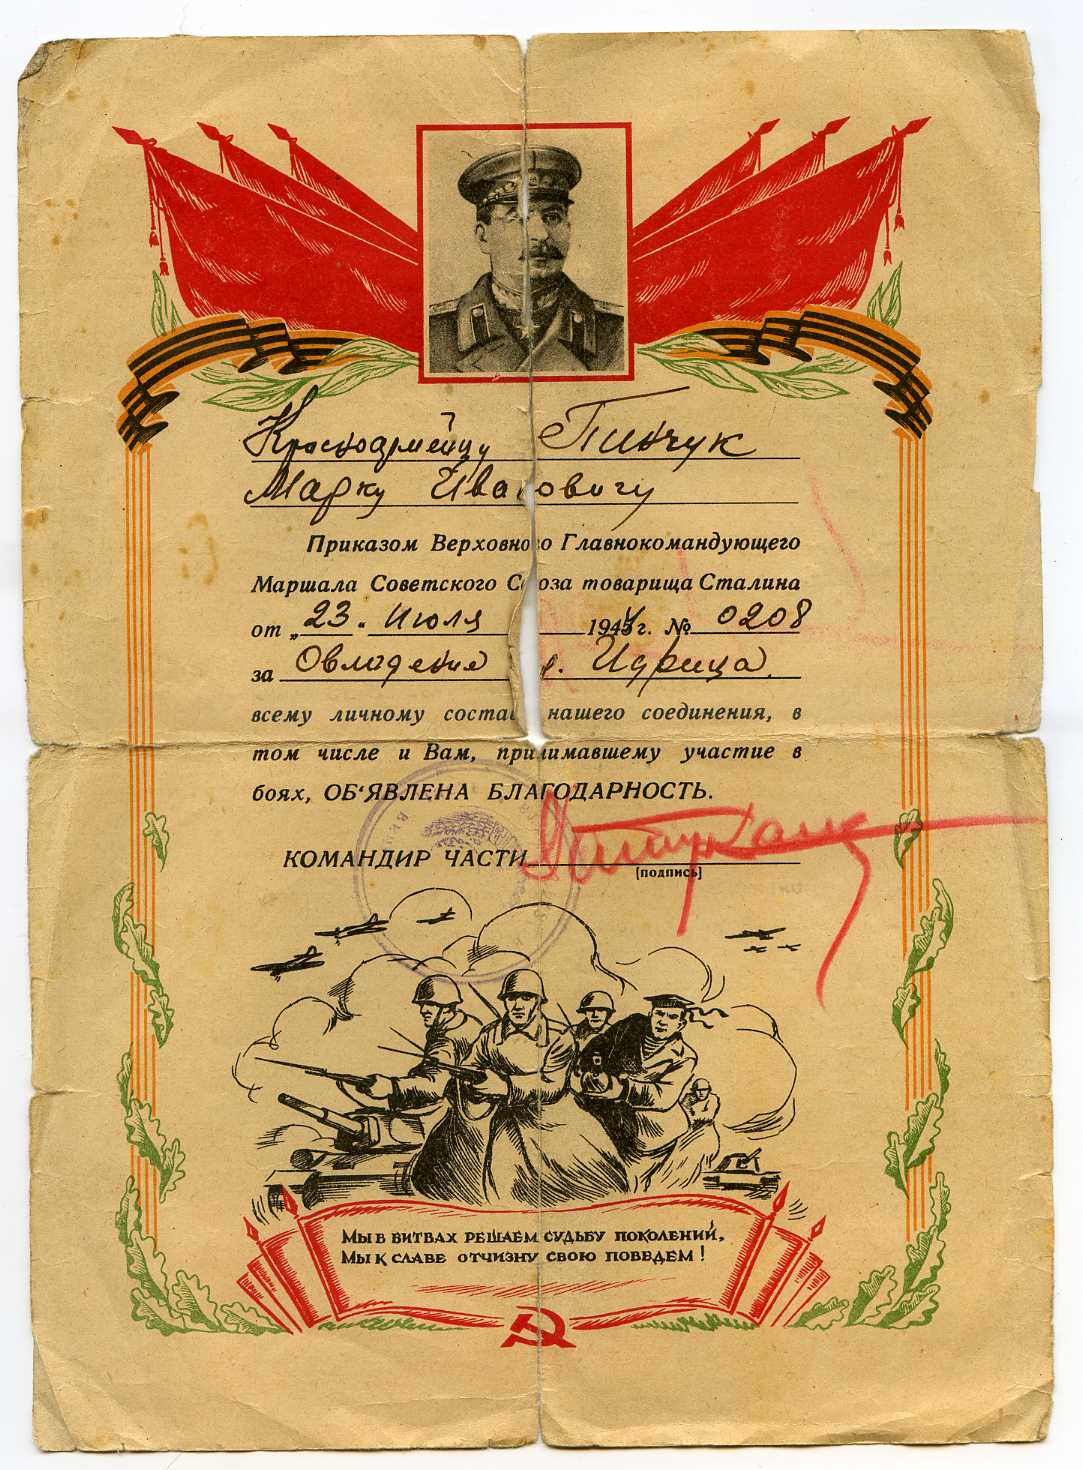 Красноармейцу Пинчук
Марку Ивановичу
Приказом Верховного Главнокомандующего
Маршала Советского Союза товарища Сталина
от „23“ Июля 1944 г. № 0208
за Овладение г. Идрица.
всему личному составу нашего соединения, в
том числе и Вам, принимавшему участие в
боях, ОБ‘ЯВЛЕНА БЛАГОДАРНОСТЬ.
КОМАНДИР ЧАСТИ
(подпись)
Мы в битвах решаем судьбу поколений,
Мы к славе отчизну свою поведем!